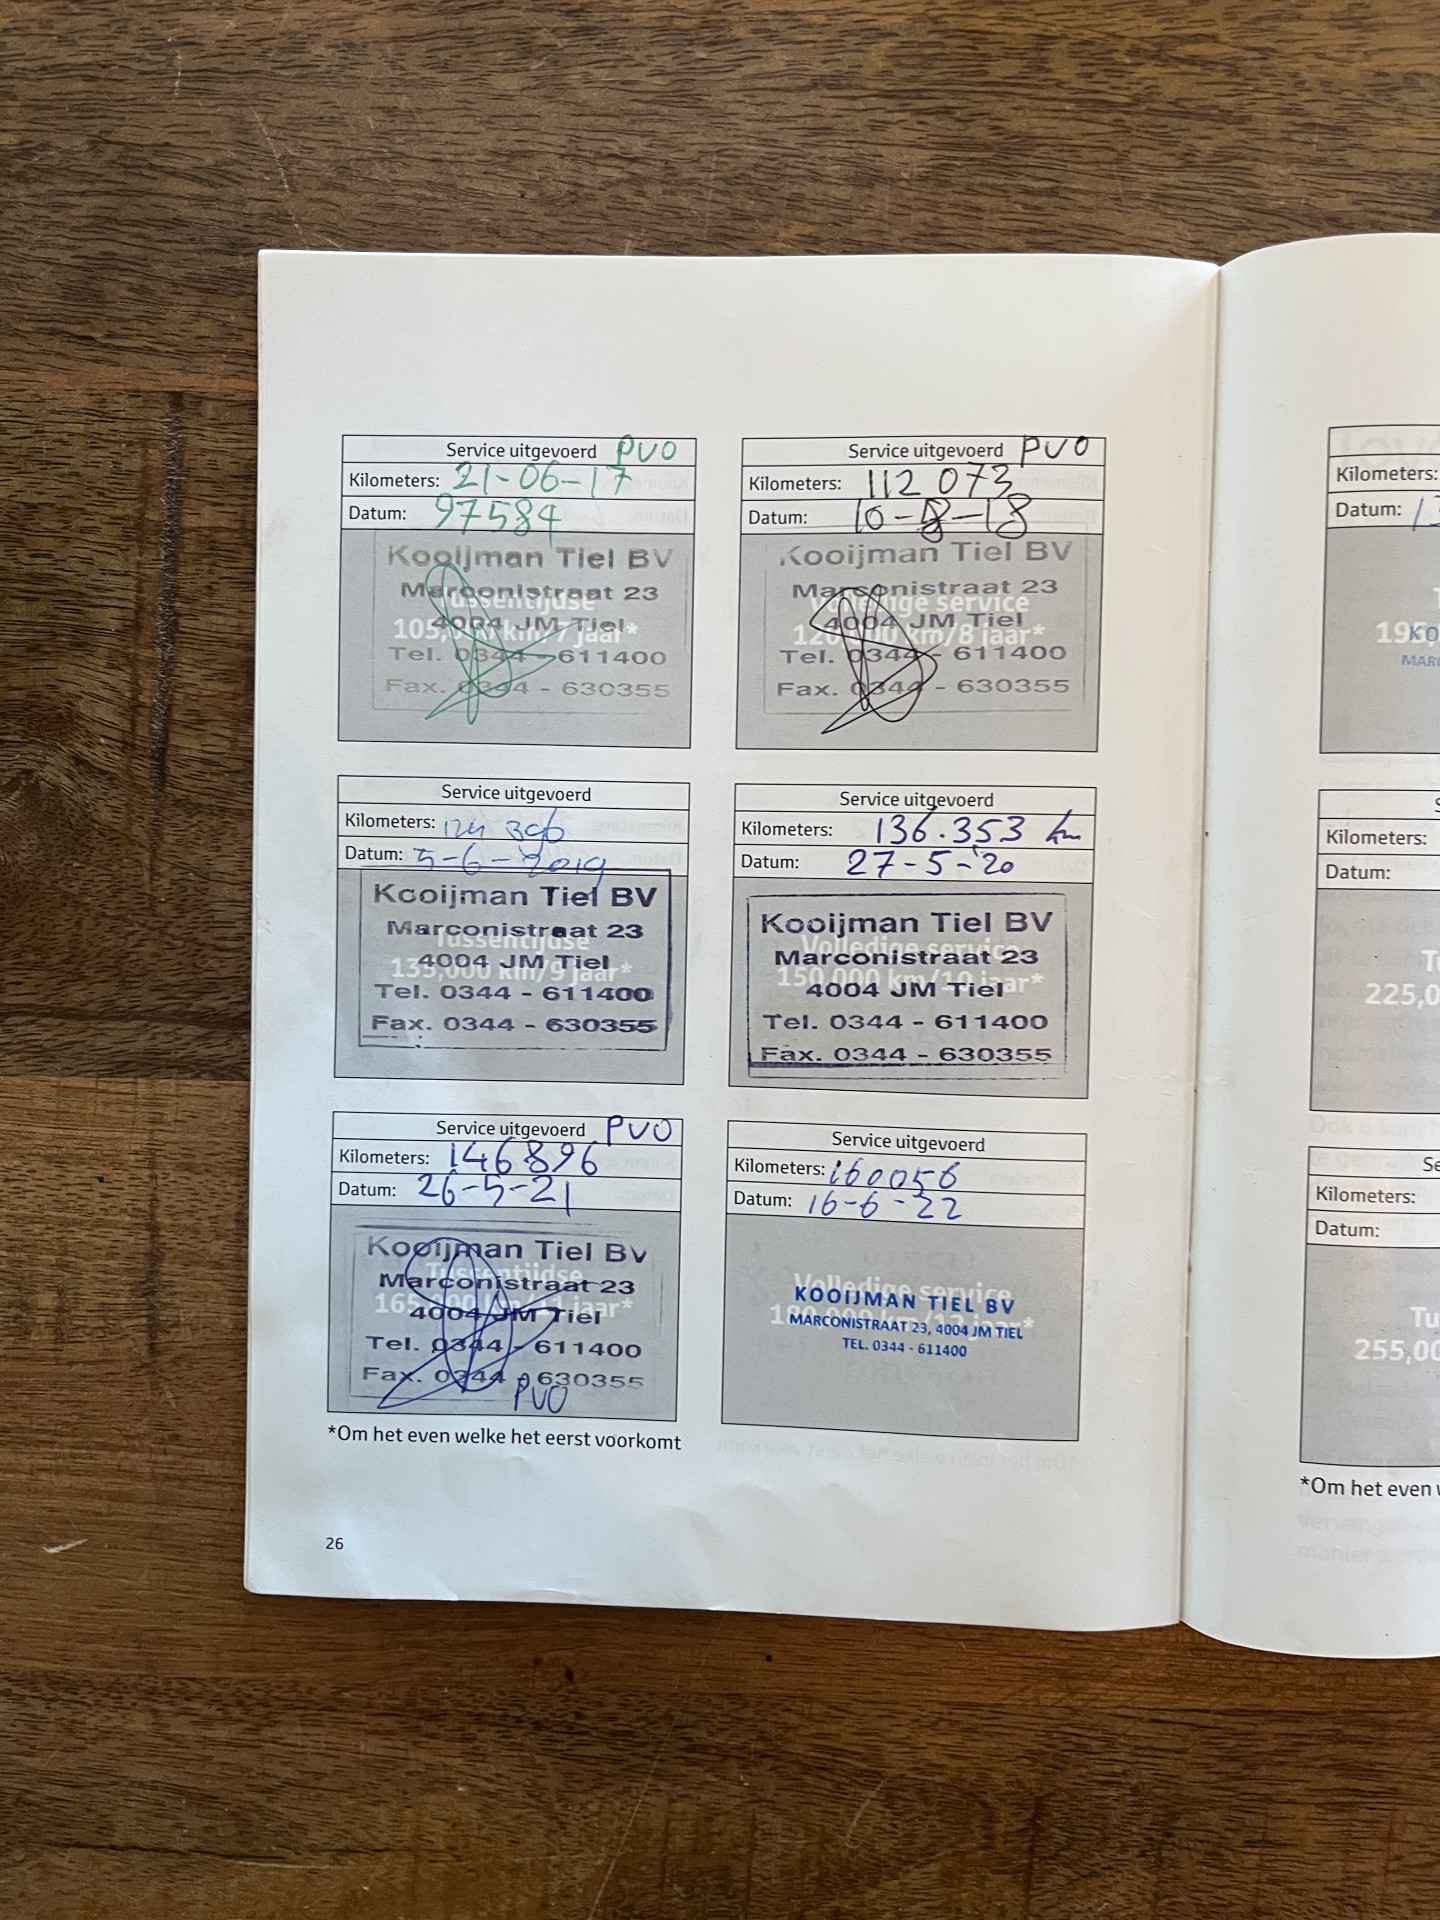 Service uitgevoerd PVO
Kilometers: 21-06-17
Datum: 97584
Kooijman Tiel BV
Marconistraat 23
Tussentijdse
4004 JM Tiel
105,000 km/7 jaar*
Tel. 0344 - 611400
Fax. 0344 - 630355
Service uitgevoerd PVO
Kilometers: 112 073
Datum: 10-8-18
Kooijman Tiel BV
Marconistraat 23
Volledige service
4004 JM Tiel
120,000 km/8 jaar*
Tel. 0344 - 611400
Fax. 0344 - 630355
Service uitgevoerd
Kilometers: 124 396
Datum: 5-6-2019
Kooijman Tiel BV
Marconistraat 23
Tussentijdse
4004 JM Tiel
135,000 km/9 jaar*
Tel. 0344 - 611400
Fax. 0344 - 630355
Service uitgevoerd
Kilometers: 136.353 km
Datum: 27-5-'20
Kooijman Tiel BV
Volledige service
Marconistraat 23
150,000 km/10 jaar*
4004 JM Tiel
Tel. 0344 - 611400
Fax. 0344 - 630355
Service uitgevoerd PVO
Kilometers: 146896
Datum: 26-5-21
Kooijman Tiel BV
Tussentijdse
Marconistraat 23
165,000 km/11 jaar*
4004 JM Tiel
Tel. 0344 - 611400
Fax. 0344 - 630355
PVO
Service uitgevoerd
Kilometers: 160056
Datum: 16-6-22
Volledige service
KOOIJMAN TIEL BV
180,000 km/12 jaar*
MARCONISTRAAT 23, 4004 JM TIEL
TEL. 0344 - 611400
*Om het even welke het eerst voorkomt
26
Kilometers:
Datum:
195,
KO
MARC
Kilometers:
Datum:
Tu
225,0
Se
Kilometers:
Datum:
Tu
255,00
*Om het even